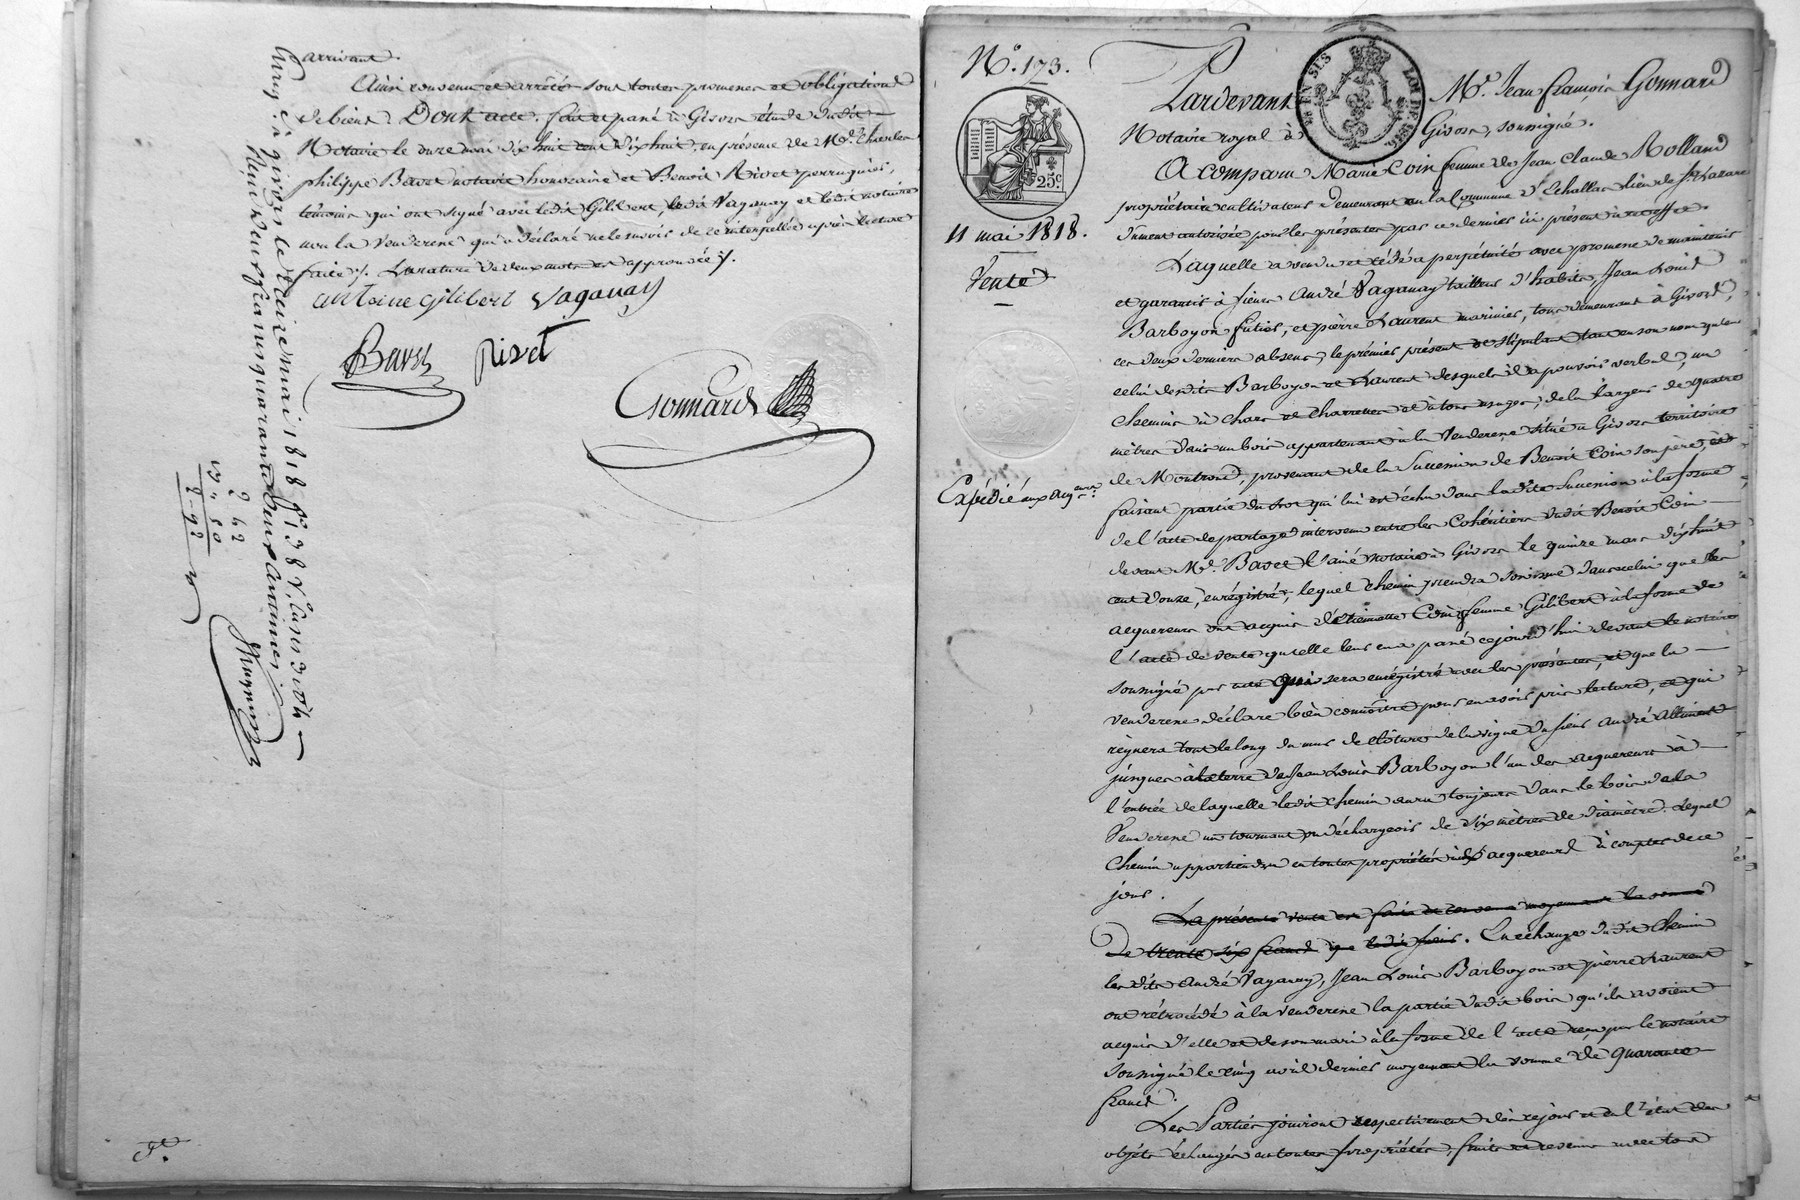 arrivant.
Ainsi convenu et arrêté sous toutes promesses et obligations
de biens. Dont acte. fait et passé à Givors étude dudit
Notaire le onze mai dix huit cent dix huit, en présence de Mrs. Charles
philippe Bavet notaire honoraire et Benoit Rivet perruquier,
témoins qui ont signé avec ledit Gilibert, ledit Vaganay et ledit notaire
non la Venderesse qui a déclaré ne le savoir de ce interpellée après lecture
faite /. La rature de deux mots est approuvée /.
antoine gilibert Vaganay
Bavet Rivet
Gonnard
Enrg. à givors le douze mai 1818 fo. 138 Vo. Cases
Reçu deux francs quarante deux centimes
2 42
50
2-92
No. 173.
25c.
11 mai 1818.
Vente
Expédié aux acq.eurs
28 EN SUS LOI DE 1816.
Pardevant Me. Jean françois Gonnard
Notaire royal à Givors, soussigné.
A comparu Marie Coin femme de Jean Claude Rolland
propriétaire cultivateur demeurant en la Commune d'Echallas lieu de St. Lazare
dument autorisée pour les présentes par ce dernier ici présent à cet effet.
Laquelle a vendu et cédé à perpétuité avec promesse de maintenir
et garantir à sieurs André Vaganay tailleur d'habits, Jean Louis
Barboyon futier, et pierre Laurent marinier, tous demeurant à Givors,
ces deux derniers absens, le premier présent et stipulant tant en son nom qu'en
celui desdits Barboyon et Laurent desquels il a pouvoir verbal, un
Chemin à chars et charrettes et à tous usages, de la largeur de quatre
mètres dans un bois appartenant à la Venderesse, situé à Givors territoire
de Montrond, provenant de la Succession de Benoit Coin son père, et
faisant partie du lot qui lui est échu dans ladite Succession à la forme
de l'acte de partage intervenu entre les Cohéritiers dudit Benoit Coin
devant Me. Bavet l'ainé notaire à Givors le quinze mars dix huit
cent douze, enrégistré; lequel chemin prendra son issue dans celui que les
acquereurs ont acquis d'etiennette Coin femme Gilibert à la forme de
l'acte de vente qu'elle leur en a passé cejourd'hui devant le notaire
soussigné par acte qui sera enrégistré avec les présentes, et que la
venderesse déclare bien connoitre pour en avoir pris lecture, et qui
règnera tout le long du mur de clôture de la vigne du sieur André Allimant
jusques à la terre de Jean Louis Barboyon l'un des acquereurs à
l'entrée de laquelle ledit chemin aura toujours dans le bois de la
Venderesse un tournant ou déchargeoir de six mètres de diamètre. Lequel
Chemin appartiendra en toutes propriétés auxd. acquereurs à compter de ce
jour.
La présente vente est faite et convenue moyennant la somme
De trente six francs que ledit sieur. En échange dudit Chemin
lesdits André Vaganay, Jean Louis Barboyon et pierre Laurent
ont rétrocédé à la venderesse la partie dudit bois qu'ils avoient
acquis d'elle et de son mari à la forme de l'acte reçu par le notaire
soussigné le cinq avril dernier moyennant la somme de quarante
francs.
Les Parties jouiront respectivement dès ce jour et en l'état des
objets échangés en toutes propriétés, fruits et revenus avec tous